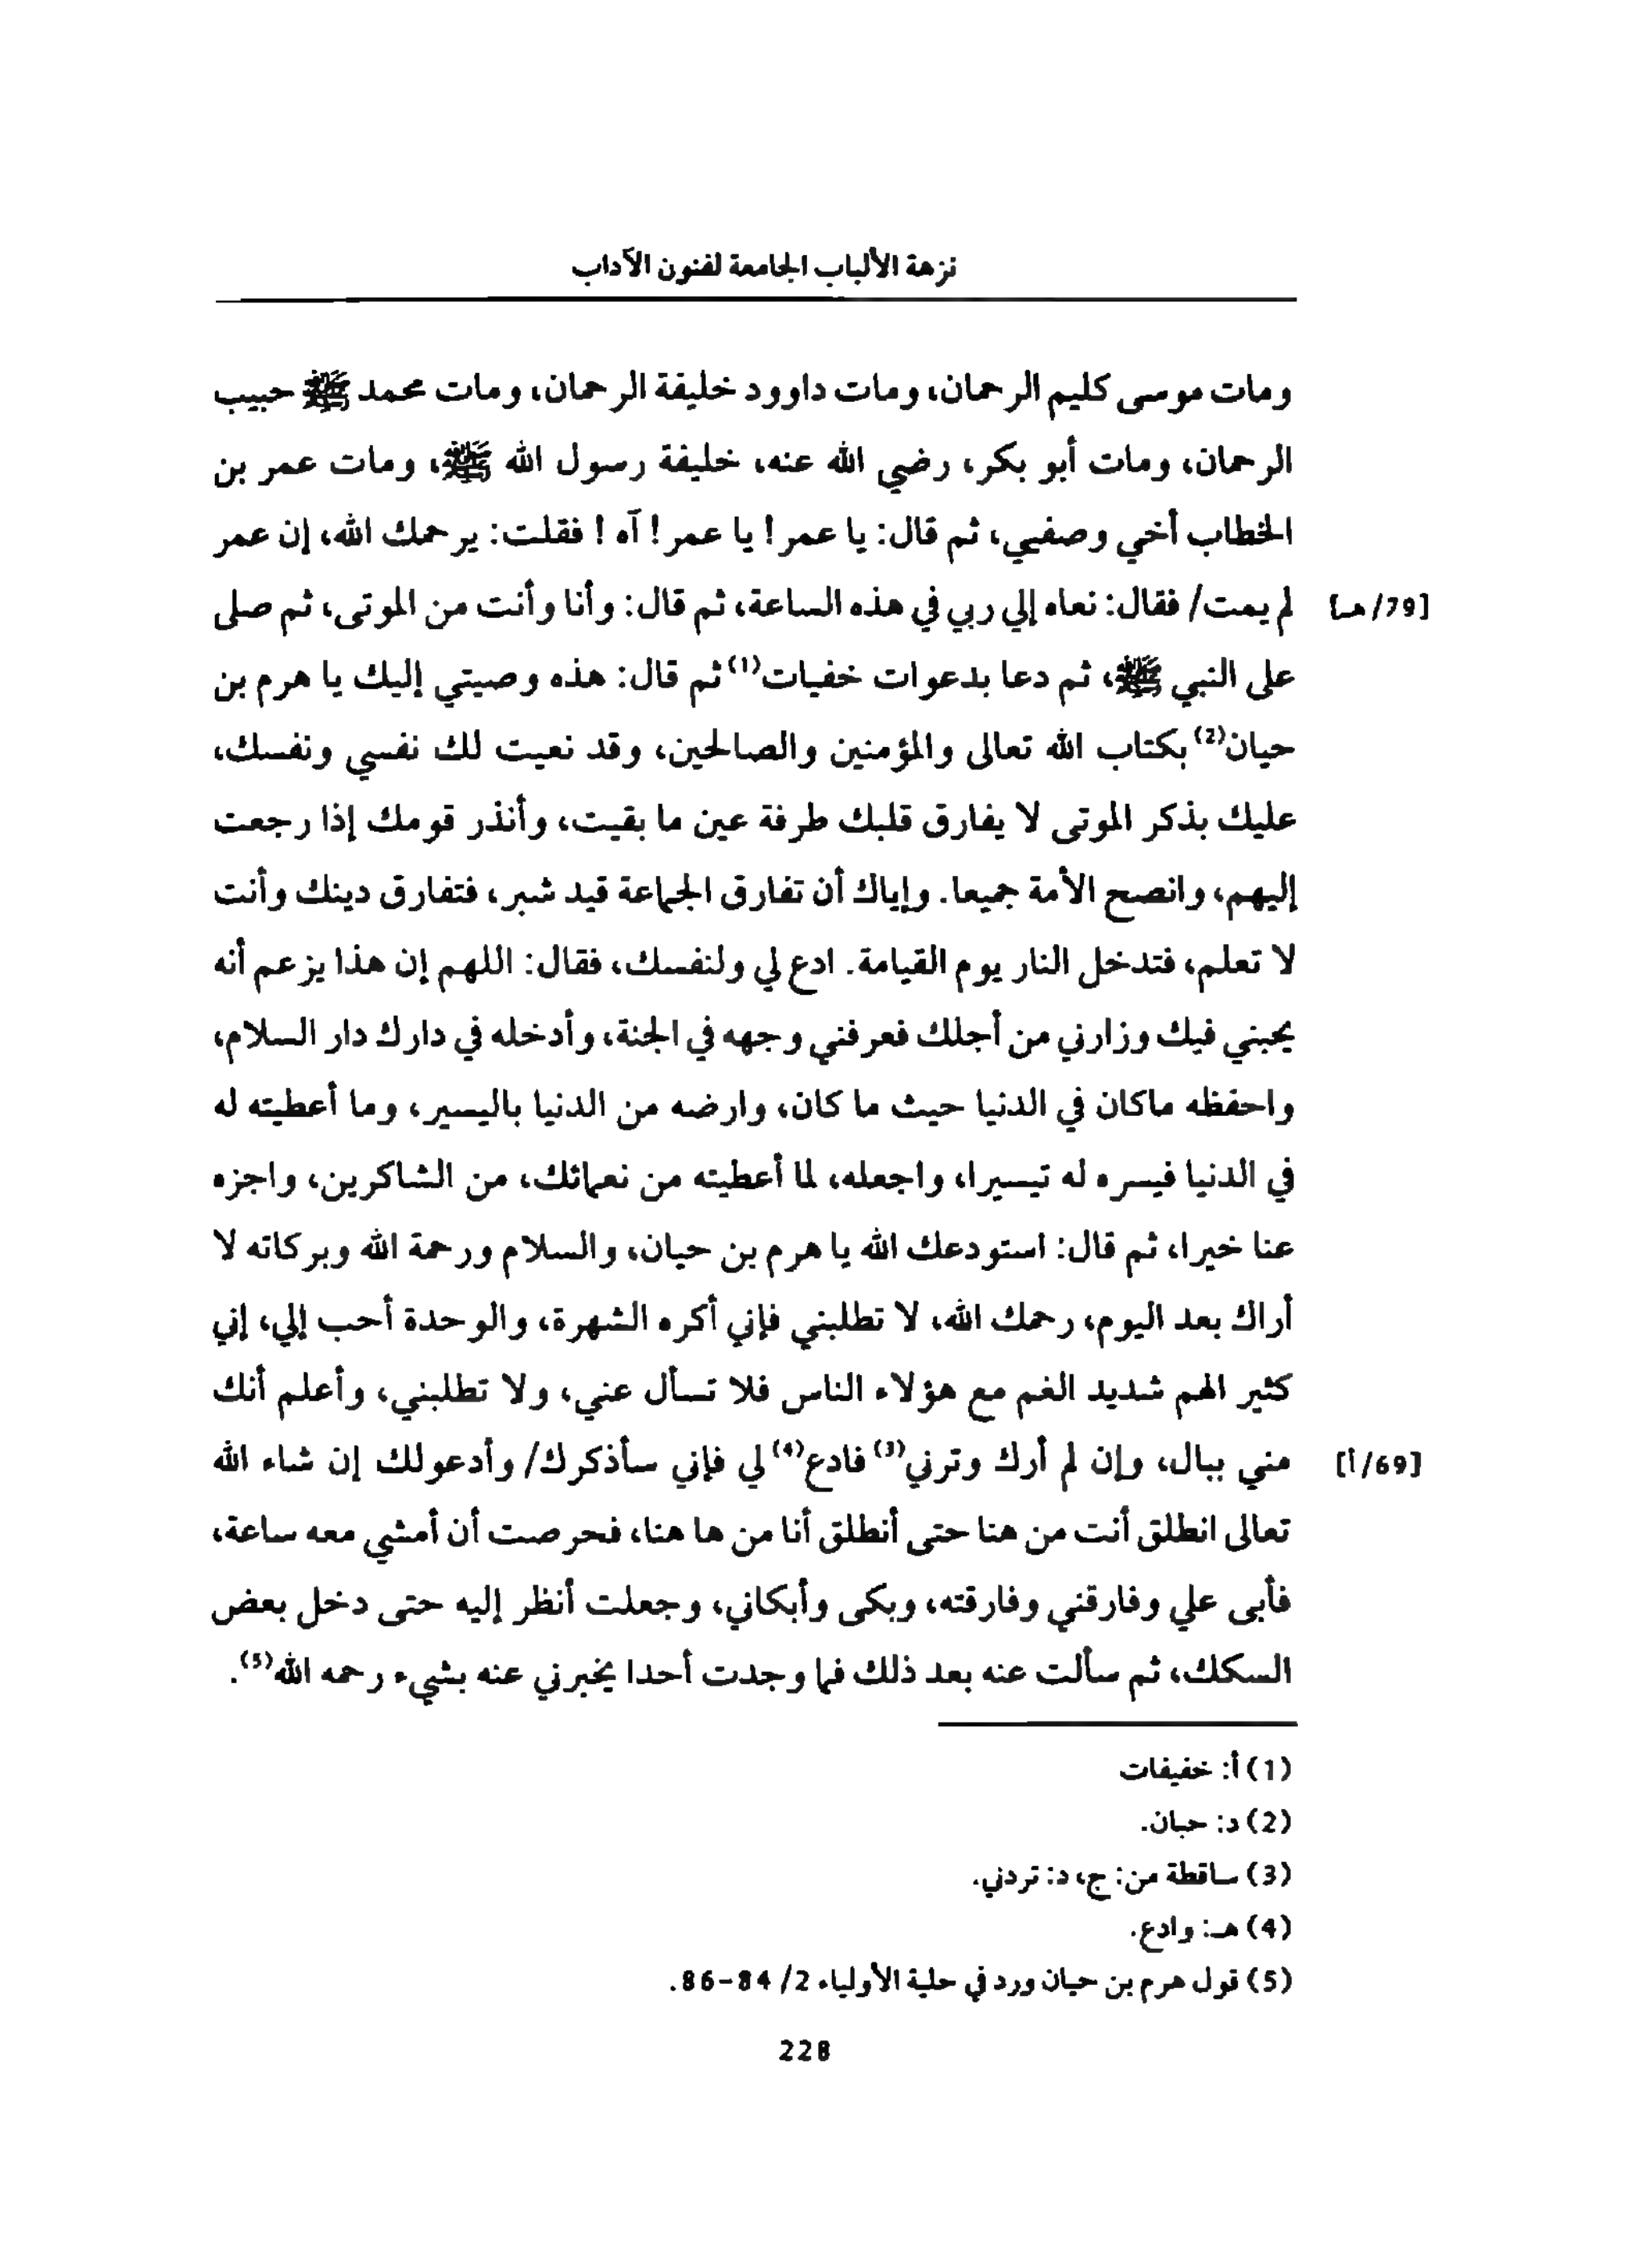 نزهة الألباب الجامعة لفنون الآداب
ومات موسى كليم الرحمان، ومات داوود خليفة الرحمان، ومات محمد ﷺ حبيب
الرحمان، ومات أبو بكر، رضي الله عنه، خليفة رسول الله ﷺ، ومات عمر بن
الخطاب أخي وصفيي، ثم قال: يا عمر! يا عمر! آه! فقلت: يرحمك الله، إن عمر
[79/هـ] لم يمت/ فقال: نعاه إلي ربي في هذه الساعة، ثم قال: وأنا وأنت من الموتى، ثم صلى
على النبي ﷺ، ثم دعا بدعوات خفيات(1) ثم قال: هذه وصيتي إليك يا هرم بن
حيان(2) بكتاب الله تعالى والمؤمنين والصالحين، وقد نعيت لك نفسي ونفسك،
عليك بذكر الموتى لا يفارق قلبك طرفة عين ما بقيت، وأنذر قومك إذا رجعت
إليهم، وانصح الأمة جميعا. وإياك أن تفارق الجماعة قيد شبر، فتفارق دينك وأنت
لا تعلم، فتدخل النار يوم القيامة. ادع لي ولنفسك، فقال: اللهم إن هذا يزعم أنه
يحبني فيك وزارني من أجلك فعرفني وجهه في الجنة، وأدخله في دارك دار السلام،
واحفظه ماكان في الدنيا حيث ما كان، وارضه من الدنيا باليسير، وما أعطيته له
في الدنيا فيسره له تيسيرا، واجعله، لما أعطيته من نعمائك، من الشاكرين، واجزه
عنا خيرا، ثم قال: استودعك الله يا هرم بن حيان، والسلام ورحمة الله وبركاته لا
أراك بعد اليوم، رحمك الله، لا تطلبني فإني أكره الشهرة، والوحدة أحب إلي، إني
كثير الهم شديد الغم مع هؤلاء الناس فلا تسأل عني، ولا تطلبني، وأعلم أنك
[69/أ] مني ببال، وإن لم أرك وترني(3) فادع(4) لي فإني سأذكرك/ وأدعولك إن شاء الله
تعالى انطلق أنت من هنا حتى أنطلق أنا من ها هنا، فحرصت أن أمشي معه ساعة،
فأبى علي وفارقني وفارقته، وبكى وأبكاني، وجعلت أنظر إليه حتى دخل بعض
السكك، ثم سألت عنه بعد ذلك فما وجدت أحدا يخبرني عنه بشيء رحمه الله(5).
(1) أ: خفيفات
(2) د: حبان.
(3) ساقطة من: ج، د: تردني.
(4) هـ: وادع.
(5) قول هرم بن حيان ورد في حلية الأولياء 2/ 84-86.
228